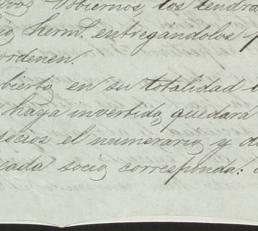 Gobiernos, los tendrá
herm.ˢ entregándolos p
ordenen.
bierto en su totalidad
haya invertido, quedará
socios el numerario y d
cada socio corresponda: